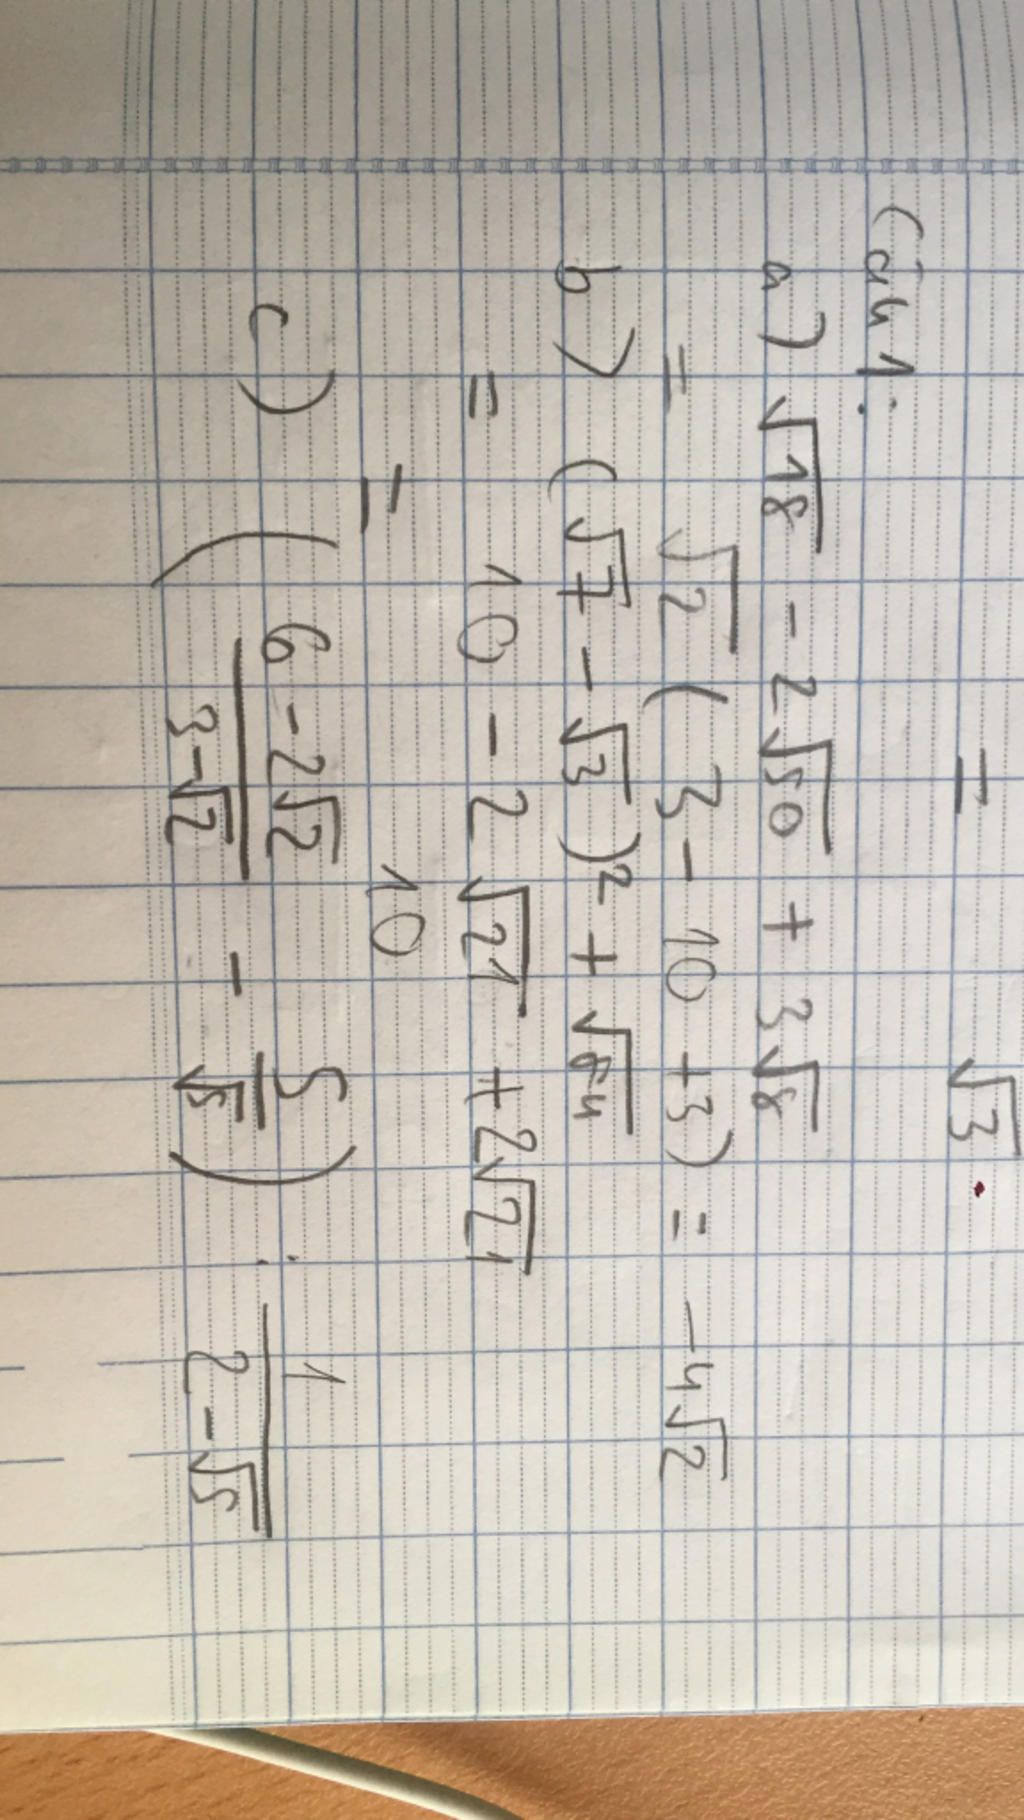 = √3.
Câu 1:
a) √18 - 2√50 + 3√8
= √2 ( 3 - 10 + 3) = -4√2
b) (√7 - √3)² + √84
= 10 - 2√21 + 2√21
= 10
c) ( (6 - 2√2)/(3-√2) - 5/√5 ) : 1/(2-√5)